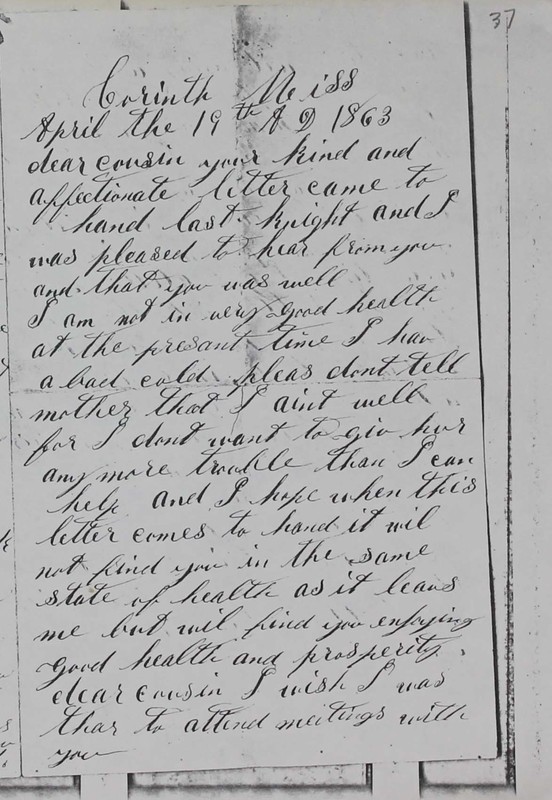 37
Corinth Miss
April the 19th A D 1863
dear cousin your kind and
affectionate letter came to
hand last knight and I
was pleased to hear from you
and that you was well
I am not in very good health
at the presant time I hav
a bad cold pleas dont tell
mother that I aint well
for I dont want to giv hur
any more trouble than I can
help and I hope when this
letter comes to hand it wil
not find you in the same
state of health as it leavs
me but wil find you enjoying
good health and prosperity.
dear cousin I wish I was
thar to attend meetings with
you